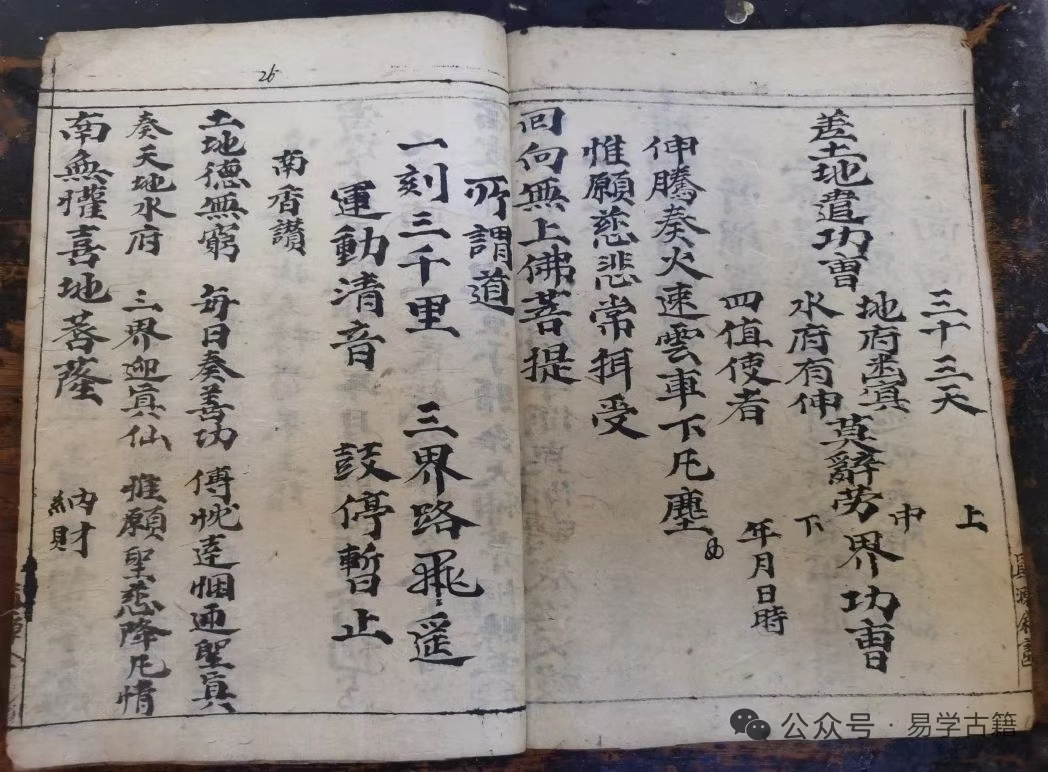 三十三天 上
地府冥 中
善土地遣功曹 莫辭勞 界功曹
水府有伸 下
四值使者 年月日時
伸騰奏火速雲車下凡塵
惟願慈悲常受
回向無上佛菩提
所謂道
一刻三千里 三界路飛遥
運動清音 鼓停暫止
26
南香讃
土地德無窮 每日奏善功 傅忱逹悃通聖真
奏天地水府 三界迎真仙 惟願聖慈降凡情
南無懽喜地菩薩 納財
公众号·易学古籍